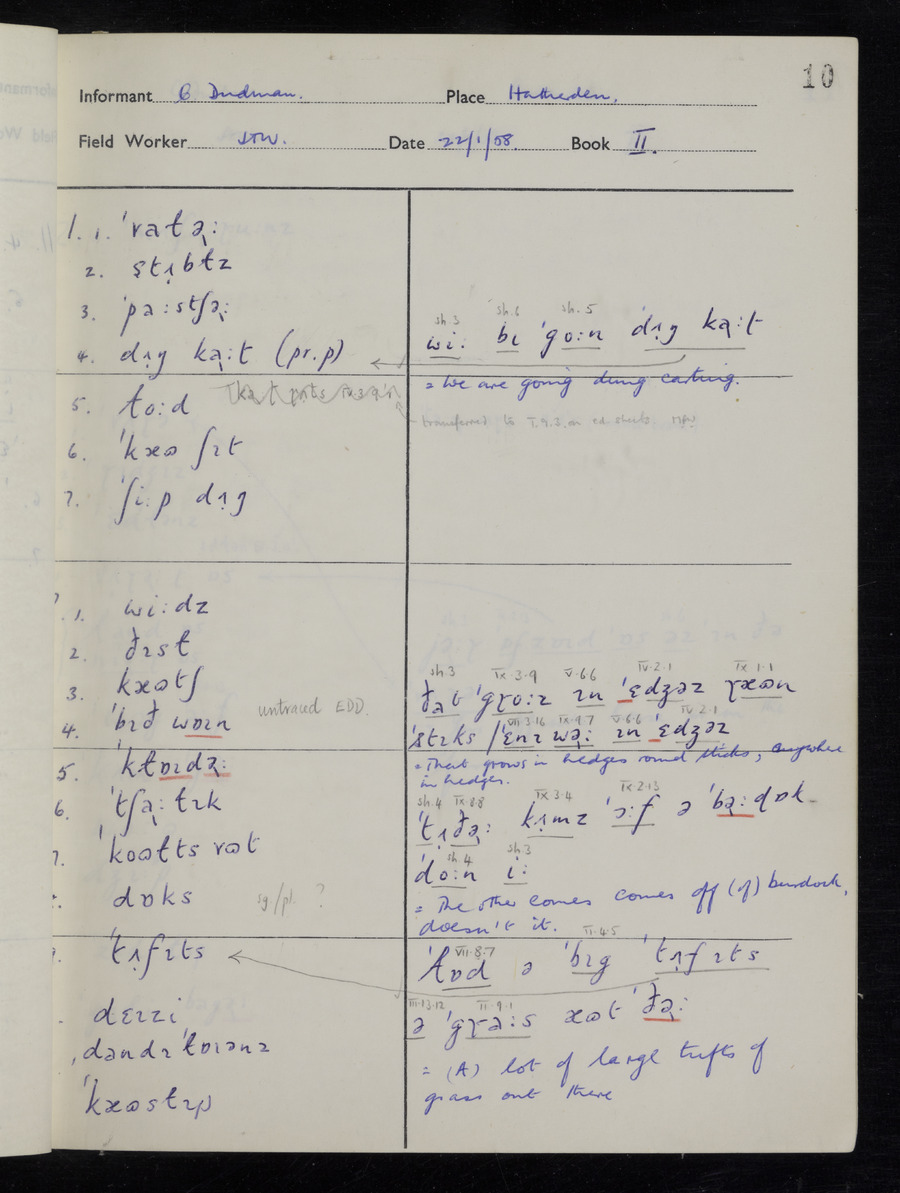 10
Informant G Dudman. Place Hatheden.
Field Worker Date 22/1/58. Book II.
1. 1. ˈratə˞:
2. stɪbtz
3. ˈpa:stʃə˞:
4. dɪg ka˞:t (pr.p)
5. to:d
6. ˈkæʊ ʃɪt
7. ʃi:p dʌg
sh.3 sh.6 sh.5
wi: bɪ ˈgo:n dʌg ka˞:t
= We are going dung carting.
transferred to I.9.3. on ed sheets.
1. wi:dz
2. ðɪst
3. kæʊtʃ
4. ˈbɪð wɒɪn untraced EDD.
5. ˈktɒɪdə˞:
6. ˈtʃa˞:tɪk
7. ˈkoʊtts vʊt
dɒks sg/pl. ?
ˈtʌfɪts
dɛɪzi
dandɪˈtɒɪənz
ˈkæʊstɪp
sh.3 IX.3.9 V.6.6 IV.2.1 IX.1.1
ðat ˈgɽo:z ɪn ˈɛdʒəz ɽæʊn
VII.3.16 IX.9.7 V.6.6 IV.2.1
ˈstɪks / ˈɛnɪwə˞: ɪn ˈɛdʒəz
= That grows in hedges round sticks; anywhere
in hedges.
sh.4 IX.8.8 IX.3.4 IX.2.13
ˈtʌðə˞: kʌmz ˈɔ:f ə ˈbə˞:dɒk
sh.4 sh.3
do:n i:
= The other comes comes off (of) burdock,
doesn't it.
VII.8.7 II.4.5
ˈtɒd ə ˈbɪg ˈtʌfɪts
III.13.12 II.9.1
ə ˈgɽa:s æʊt ˈðə˞:
= (A) lot of large tufts of
grass out there